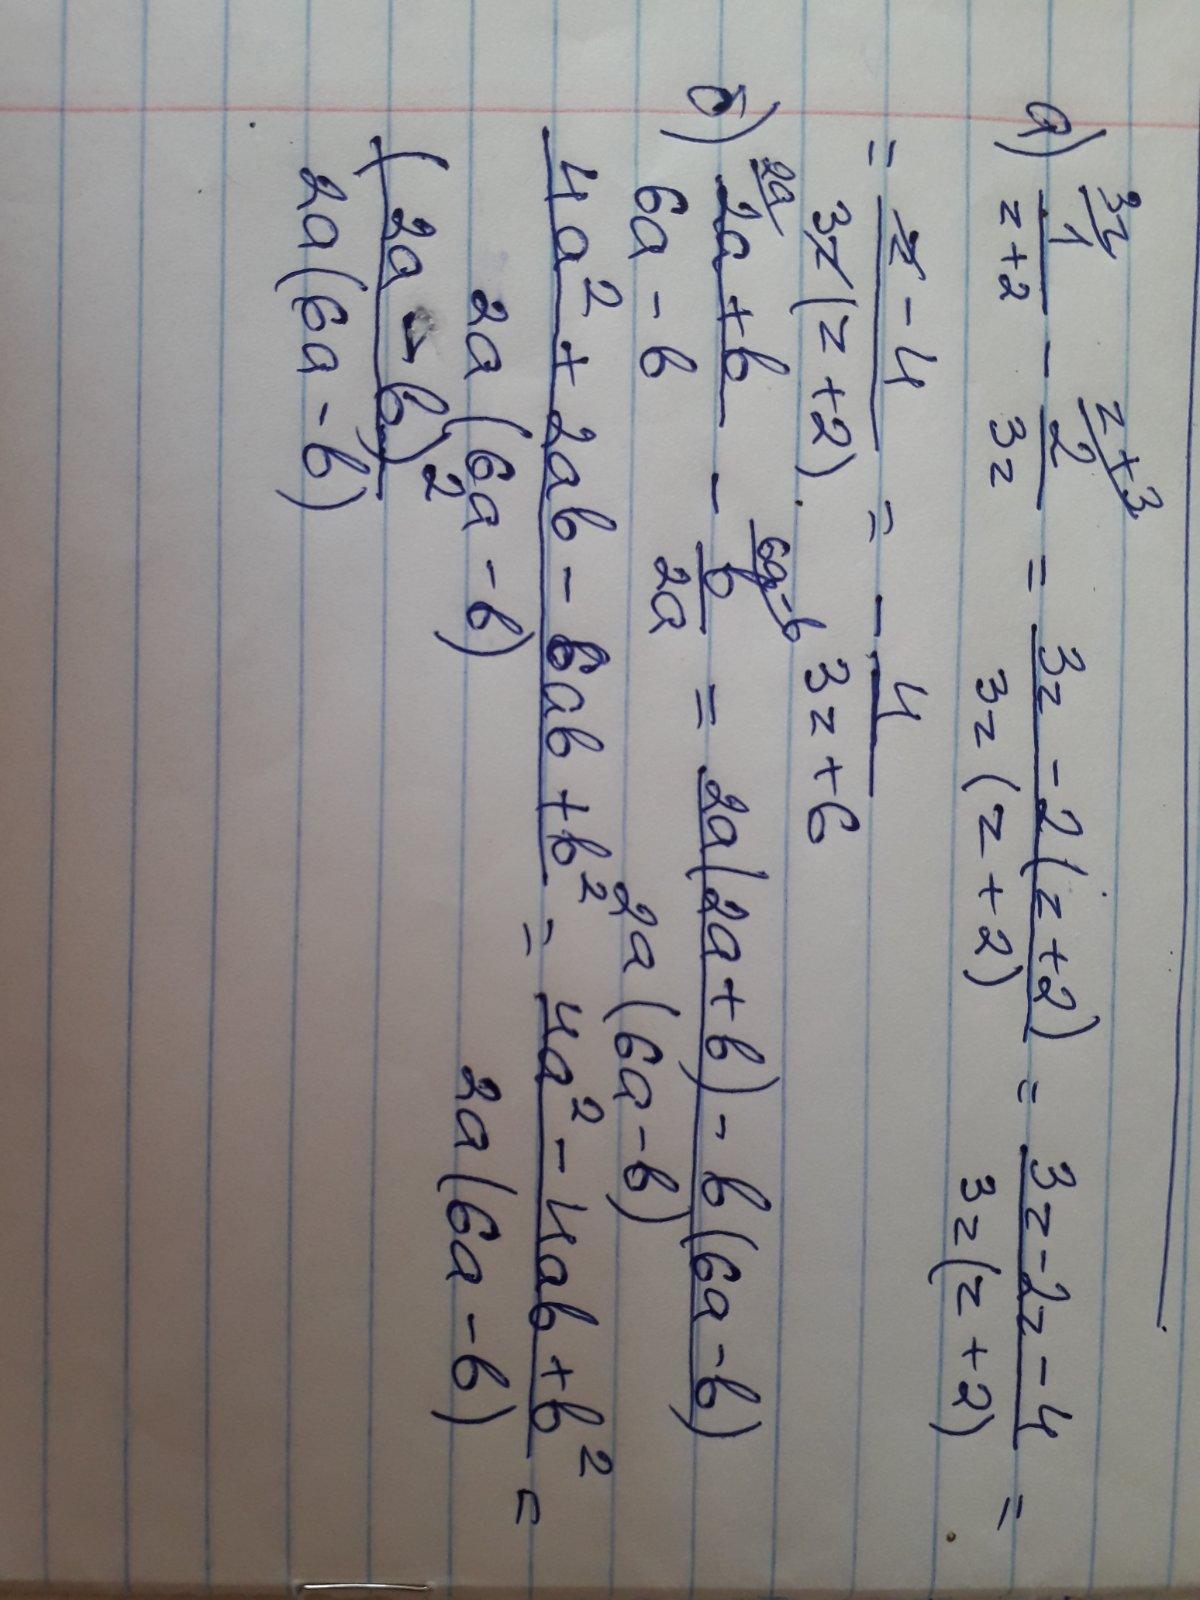 а) 3z/ 1/(z+2) - z+3/ 2/(3z) = (3z-2(z+2))/(3z(z+2)) = (3z-2z-4)/(3z(z+2)) =
= (z-4)/(3z(z+2)) = - 4/(3z+6)
б) 2a/ (2a+b)/(6a-b) - 6a-b/ b/(2a) = (2a(2a+b)-b(6a-b))/(2a(6a-b))
(4a²+2ab-6ab+b²)/(2a(6a-b)) = (4a²-4ab+b²)/(2a(6a-b)) =
(2a-b)²/(2a(6a-b))